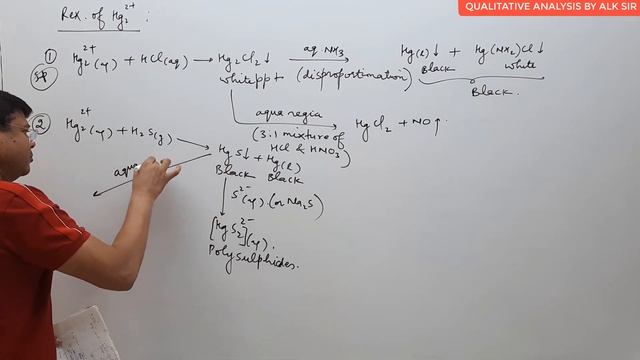 QUALITATIVE ANALYSIS BY ALK SIR
Rex. of Hg₂²⁺ :
① Hg₂²⁺(aq) + HCl(aq) → Hg₂Cl₂↓ aq. NH₃ → Hg(l)↓ + Hg(NH₂)Cl↓
Sp white ppt (disproportimation) Black white
Black.
aqua regia → HgCl₂ + NO↑.
(3:1 mixture of
HCl & HNO₃)
② Hg₂²⁺(aq) + H₂S(g) → HgS↓ + Hg(l)
Black Black
aqua
S²⁻(aq). (or Na₂S)
[HgS₂]²⁻(aq).
Polysulphides.